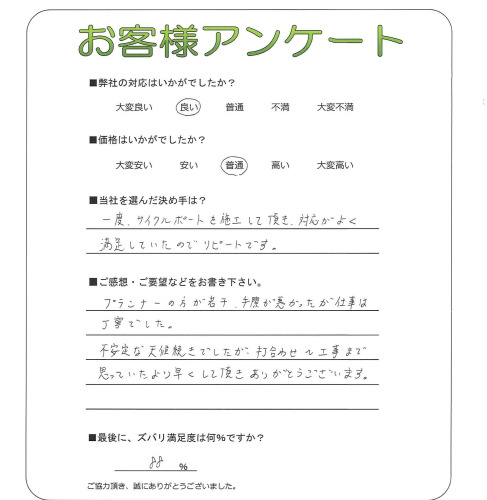 お客様アンケート
■弊社の対応はいかがでしたか？
大変良い 良い 普通 不満 大変不満
■価格はいかがでしたか？
大変安い 安い 普通 高い 大変高い
■当社を選んだ決め手は？
一度、サイクルポートを施工して頂き、対応がよく
満足していたのでリピートです。
■ご感想・ご要望などをお書き下さい。
プランナーの方が若干、手際が悪かったが仕事は
丁寧でした。
不安定な天候続きでしたが、打合わせ〜工事まで
思っていたより早くして頂きありがとうございます。
■最後に、ズバリ満足度は何%ですか？
88 %
ご協力頂き、誠にありがとうございました。